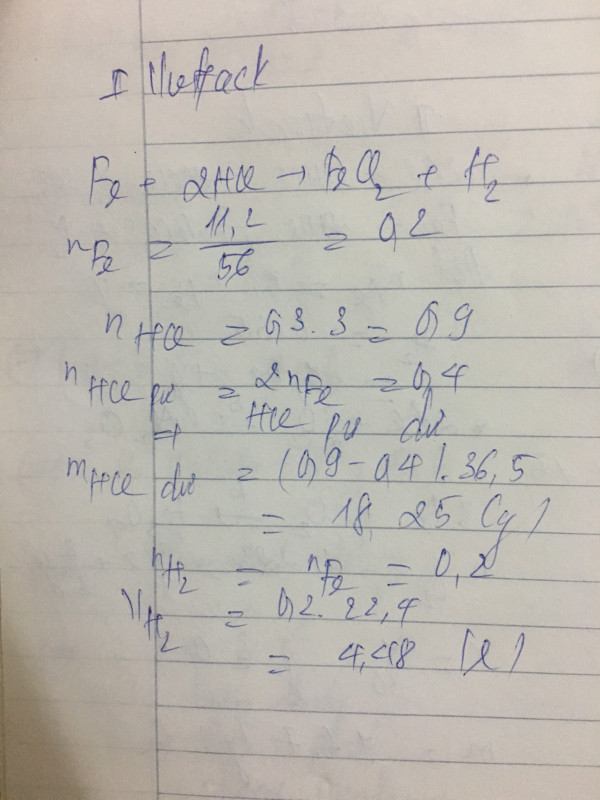 Fe + 2HCl → FeCl₂ + H₂
nFe = 11,2/56 = 0,2
nHCl = 0,3.3 = 0,9
nHCl pư = 2nFe = 0,4
⇒ HCl pư dư
mHCl dư = (0,9-0,4).36,5
= 18,25 (g)
nH₂ = nFe = 0,2
VH₂ = 0,2.22,4
= 4,48 (l)